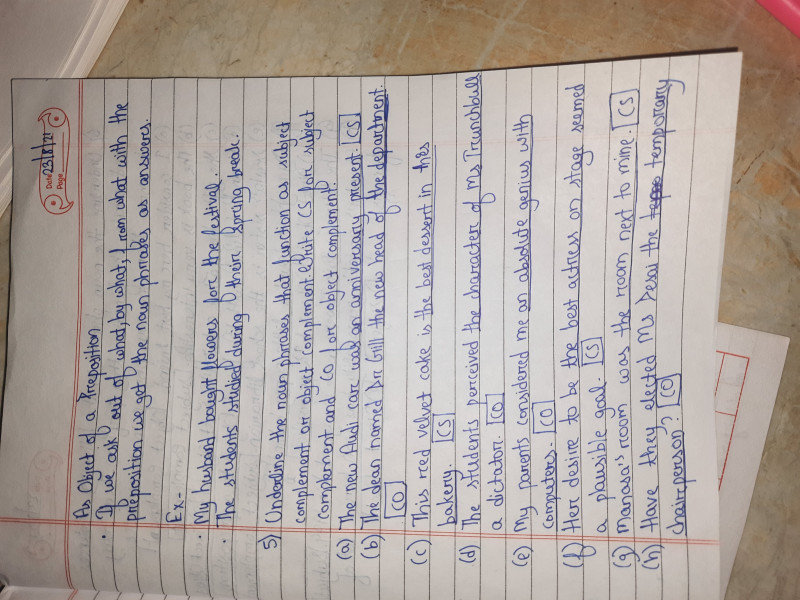 Date 23/8/21
Page
As Object of a Preposition
• If we ask out of what, by what, from what with the
preposition we get the noun phrases as answers.
Ex-
• My husband bought flowers for the festival.
• The students studied during their spring break.
5) Underline the noun phrases that function as subject
complement or object complement. Write CS for subject
complement and CO for object complement.
(a) The new Audi car was an anniversary present. CS
(b) The dean named Dr Gill the new head of the department.
CO
(c) This red velvet cake is the best dessert in this
bakery. CS
(d) The students perceived the character of Ms Trunchbull
a dictator. CO
(e) My parents considered me an absolute genius with
computers. CO
(f) Her desire to be the best actress on stage seemed
a plausible goal. CS
(g) Manasa's room was the room next to mine. CS
(h) Have they elected Ms Desai the temporary
chairperson? CO